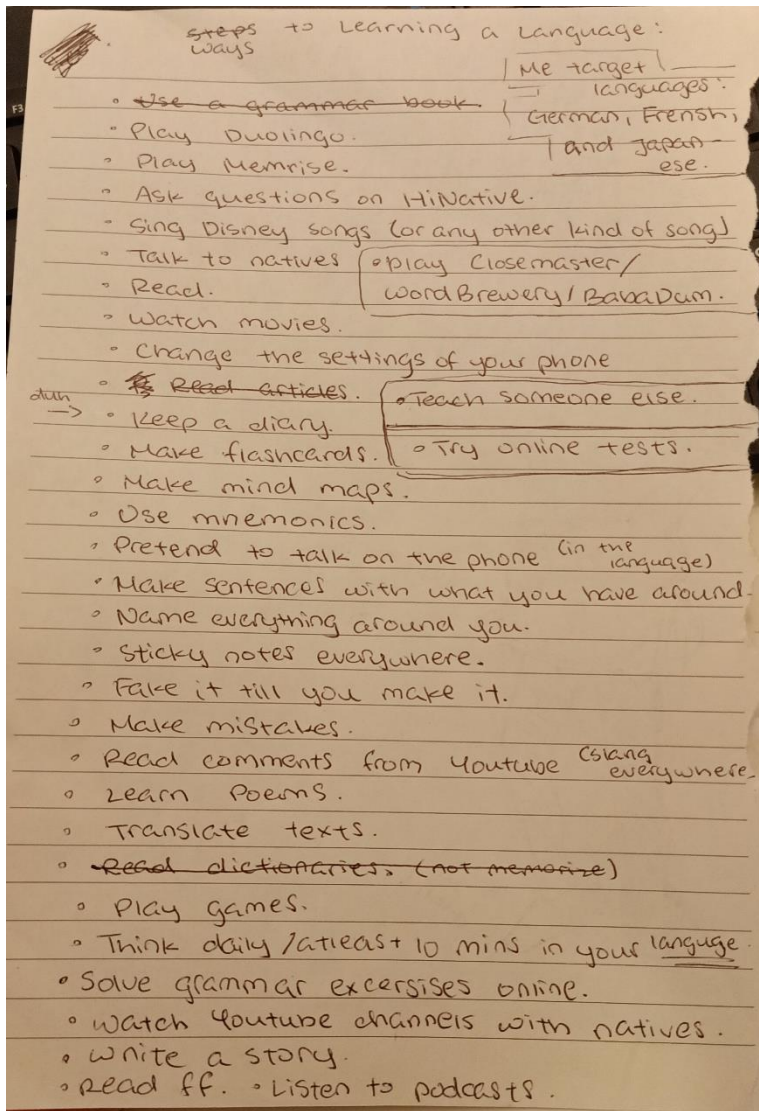 steps to Learning a Language:
ways
Me target
languages:
German, Frensh,
and Japan-
ese.
• Use a grammar book.
• Play Duolingo.
• Play Memrise.
• Ask questions on HiNative.
• Sing Disney songs (or any other kind of song)
• Talk to natives
• Play Closemaster/
WordBrewery/BabaDum.
• Read.
• Watch movies.
• Change the settings of your phone
• Read articles.
• Teach someone else.
• Keep a diary.
• Try online tests.
• Make flashcards.
• Make mind maps.
• Use mnemonics.
• Pretend to talk on the phone (in the
language)
• Make sentences with what you have around.
• Name everything around you.
• Sticky notes everywhere.
• Fake it till you make it.
• Make mistakes.
• Read comments from Youtube (slang
everywhere.
• Learn Poems.
• Translate texts.
• Read dictionaries. (not memorize)
• Play games.
• Think daily /atleast 10 mins in your languge.
• Solve grammar excersises online.
• Watch Youtube channels with natives.
• Write a story.
• Read ff. • Listen to podcasts.
F3